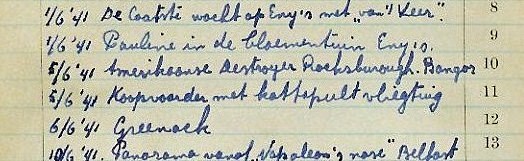 1/6 '41 De Laatste wacht op Eny's met "van 't Veer". 8
1/6 '41 Pauline in de bloementuin Eny's. 9
5/6 '41 Amerikaanse destroyer Rocksburough. Bangor 10
5/6 '41 Koopvaarder met kattapult vliegtuig 11
6/6 '41 Greenock 12
10/6 '41. Panorama vanaf "Napoleon's nose" Belfast 13